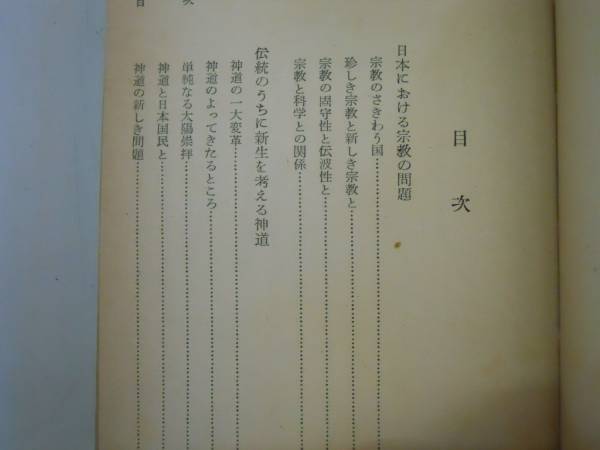 目次
日本における宗教の問題
宗教のさきわう国
珍しき宗教と新しき宗教と
宗教の固守性と伝波性と
宗教と科学との関係
伝統のうちに新生を考える神道
神道の一大変革
神道のよってきたるところ
単純なる太陽崇拝
神道と日本国民と
神道の新しき問題
目次